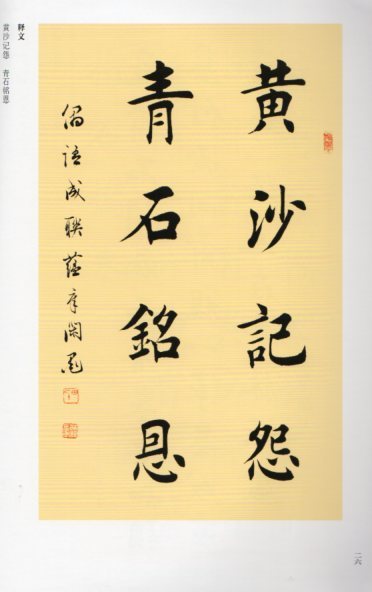 黄沙記怨
青石銘恩
語成聯
释文
黄沙记怨　青石铭恩
二六